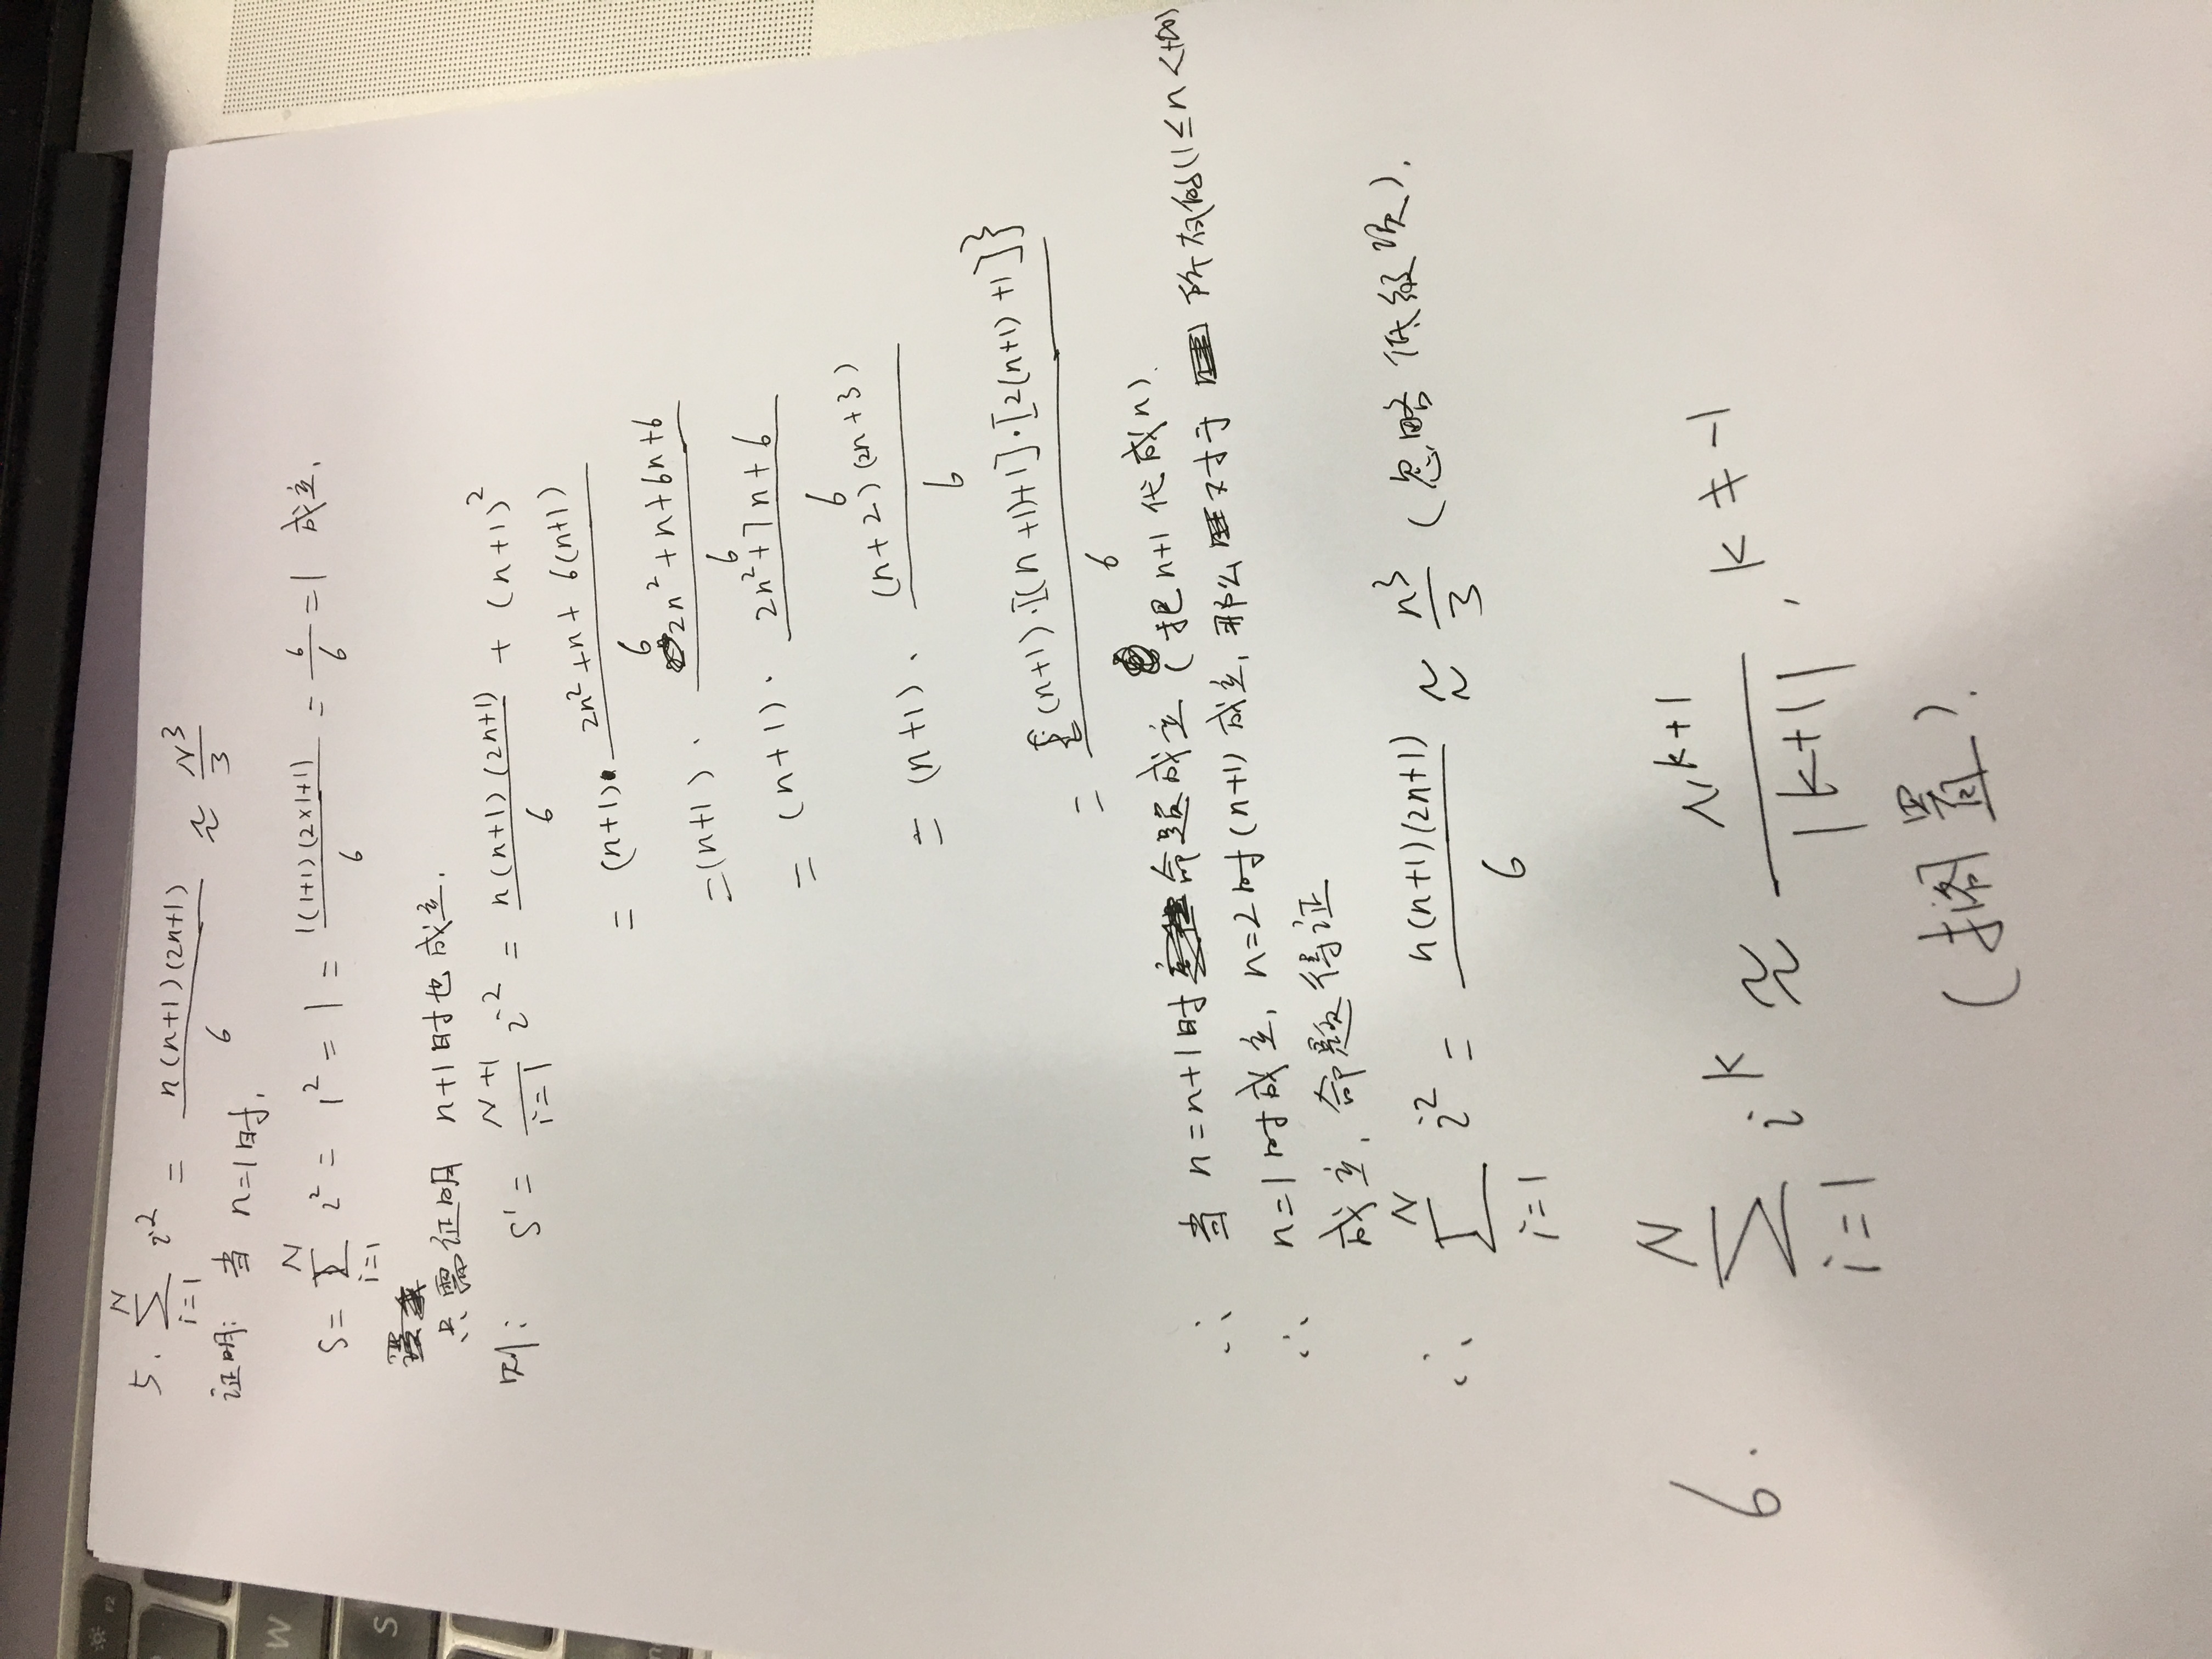 5. \sum_{i=1}^{N} i^2 = \frac{n(n+1)(2n+1)}{6} ≈ \frac{N^3}{3}
证明: 当 n=1时,
S = \sum_{i=1}^{N} i^2 = 1^2 = 1 = \frac{1(1+1)(2×1+1)}{6} = \frac{6}{6} = 1 成立.
只需证明 n+1时也成立.
则: S' = \frac{N+1}{i=1} i^2 = \frac{n(n+1)(2n+1)}{6} + (n+1)^2
= (n+1)· \frac{2n^2+n+6(n+1)}{6}
= (n+1)· \frac{2n^2+n+6n+6}{6}
= (n+1)· \frac{2n^2+7n+6}{6}
= (n+1)· \frac{(n+2)(2n+3)}{6}
= \frac{{(n+1)·[(n+1)+1]·[2(n+1)+1]}}{6}
∴ 当 n=n+1时命题成立 (把n+1代成n).
∴ n=1时成立, n=2时(n+1)成立, 那么对于所有的(1≤n<+∞)
成立, 命题得证
∴ \sum_{i=1}^{N} i^2 = \frac{n(n+1)(2n+1)}{6} ≈ \frac{n^3}{3} (忽略低级项).
6. \sum_{i=1}^{N} i^k ≈ \frac{N^{k+1}}{|k+1|}, k≠-1
(搁置).
W
S
F2